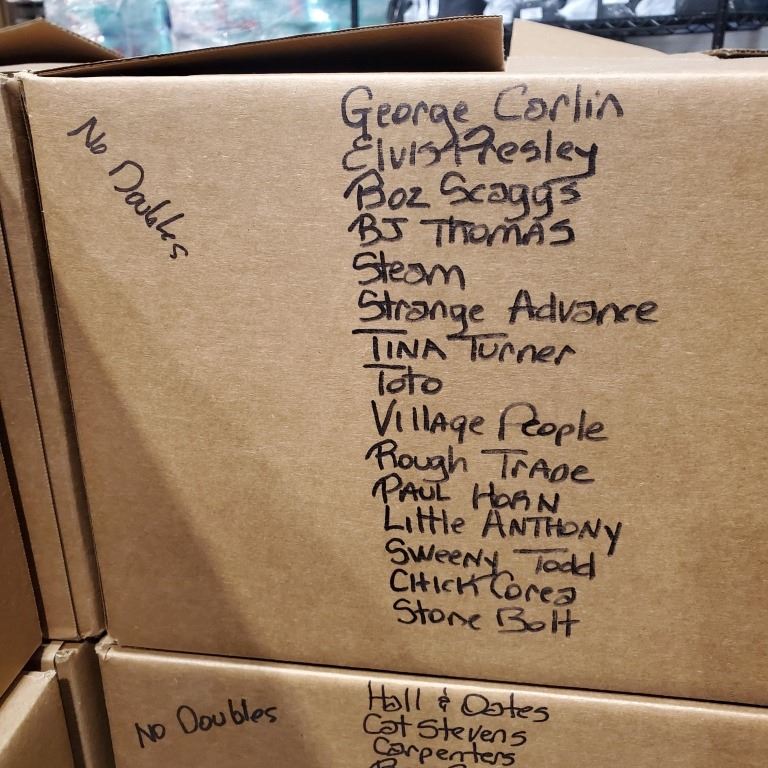 No Doubles
George Carlin
Elvis Presley
Boz Scaggs
BJ THOMAS
Steam
Strange Advance
TINA Turner
Toto
Village People
Rough TRADE
PAUL HORN
Little ANTHONY
Sweeny Todd
CHICK Corea
Stone Bolt
No Doubles
Hall & Oates
Cat Stevens
Carpenters